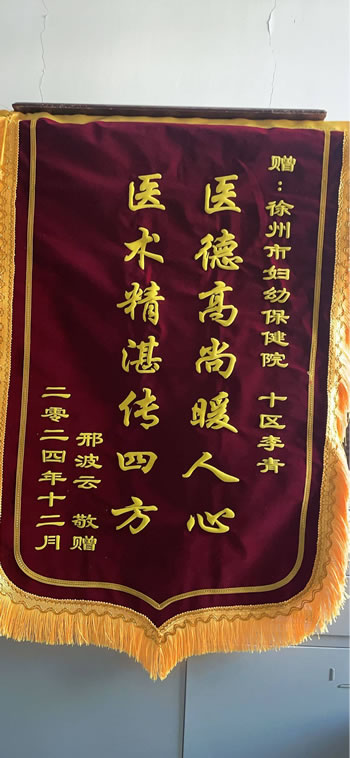 赠：徐州市妇幼保健院 十区李青
医德高尚暖人心
医术精湛传四方
邢波云 敬赠
二零二四年十二月